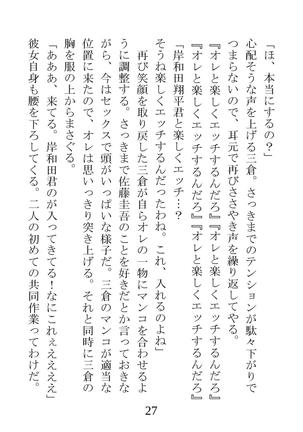 「ほ、本当にするの？」
心配そうな声を上げる三倉。さっきまでのテンションが駄々下がりで
つまらないので、耳元で再びささやき声を繰り返してやる。
『オレと楽しくエッチするんだろ』『オレと楽しくエッチするんだろ』
『オレと楽しくエッチするんだろ』『オレと楽しくエッチするんだろ』
「岸和田翔平君と楽しくエッチ…？
そうね楽しくエッチするんだったわね。これ、入れるのよね」
再び笑顔を取り戻した三倉が自らオレの一物にマンコを合わせるよ
うに調整する。さっきまで佐藤圭吾のことを好きだとか言っておきな
がら、今はセックスで頭がいっぱいな様子だ。三倉のマンコが適当な
位置に来たので、オレは思いっきり突き上げる。それと同時に三倉の
胸を服の上からまさぐる。
「あああ、来てる。岸和田君のが入ってきてる！なにこれぇえええ」
彼女自身も腰を下ろしてくる。二人の初めての共同作業ってわけだ。
27